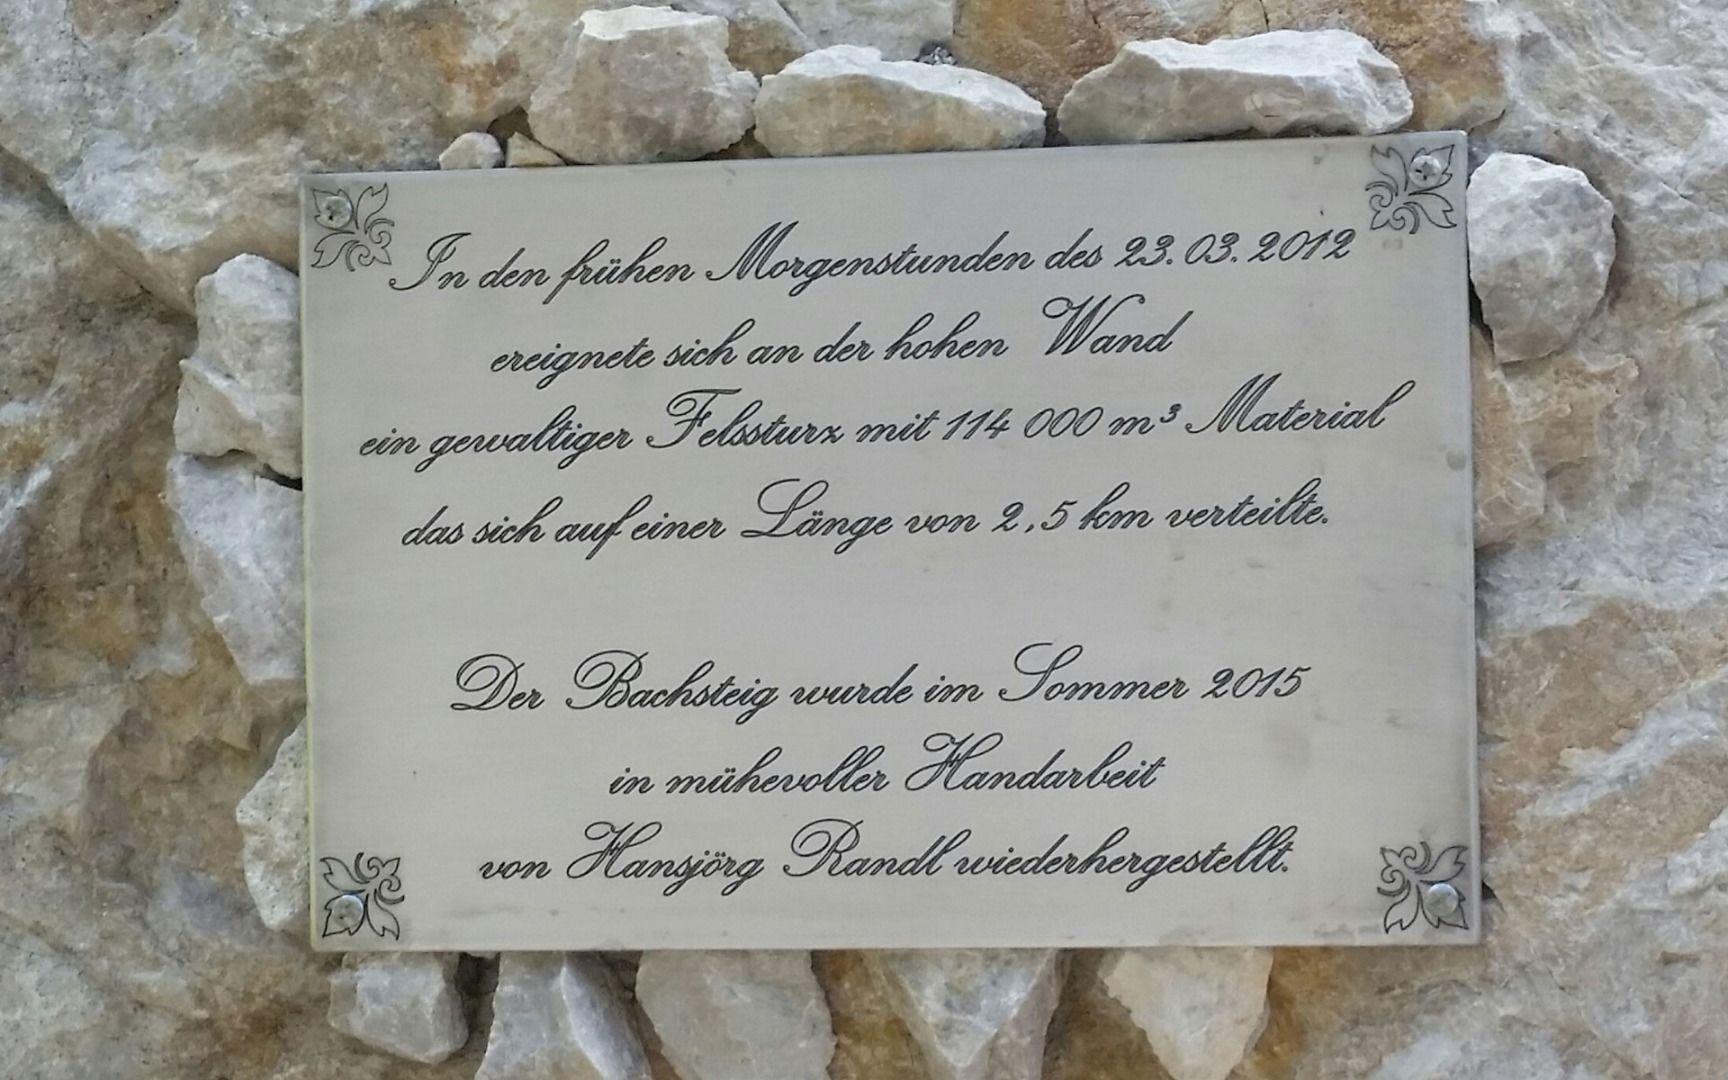 In den frühen Morgenstunden des 23. 03. 2012
ereignete sich an der hohen Wand
ein gewaltiger Felssturz mit 114 000 m³ Material
das sich auf einer Länge von 2,5 km verteilte.
Der Bachsteig wurde im Sommer 2015
in mühevoller Handarbeit
von Hansjörg Randl wiederhergestellt.